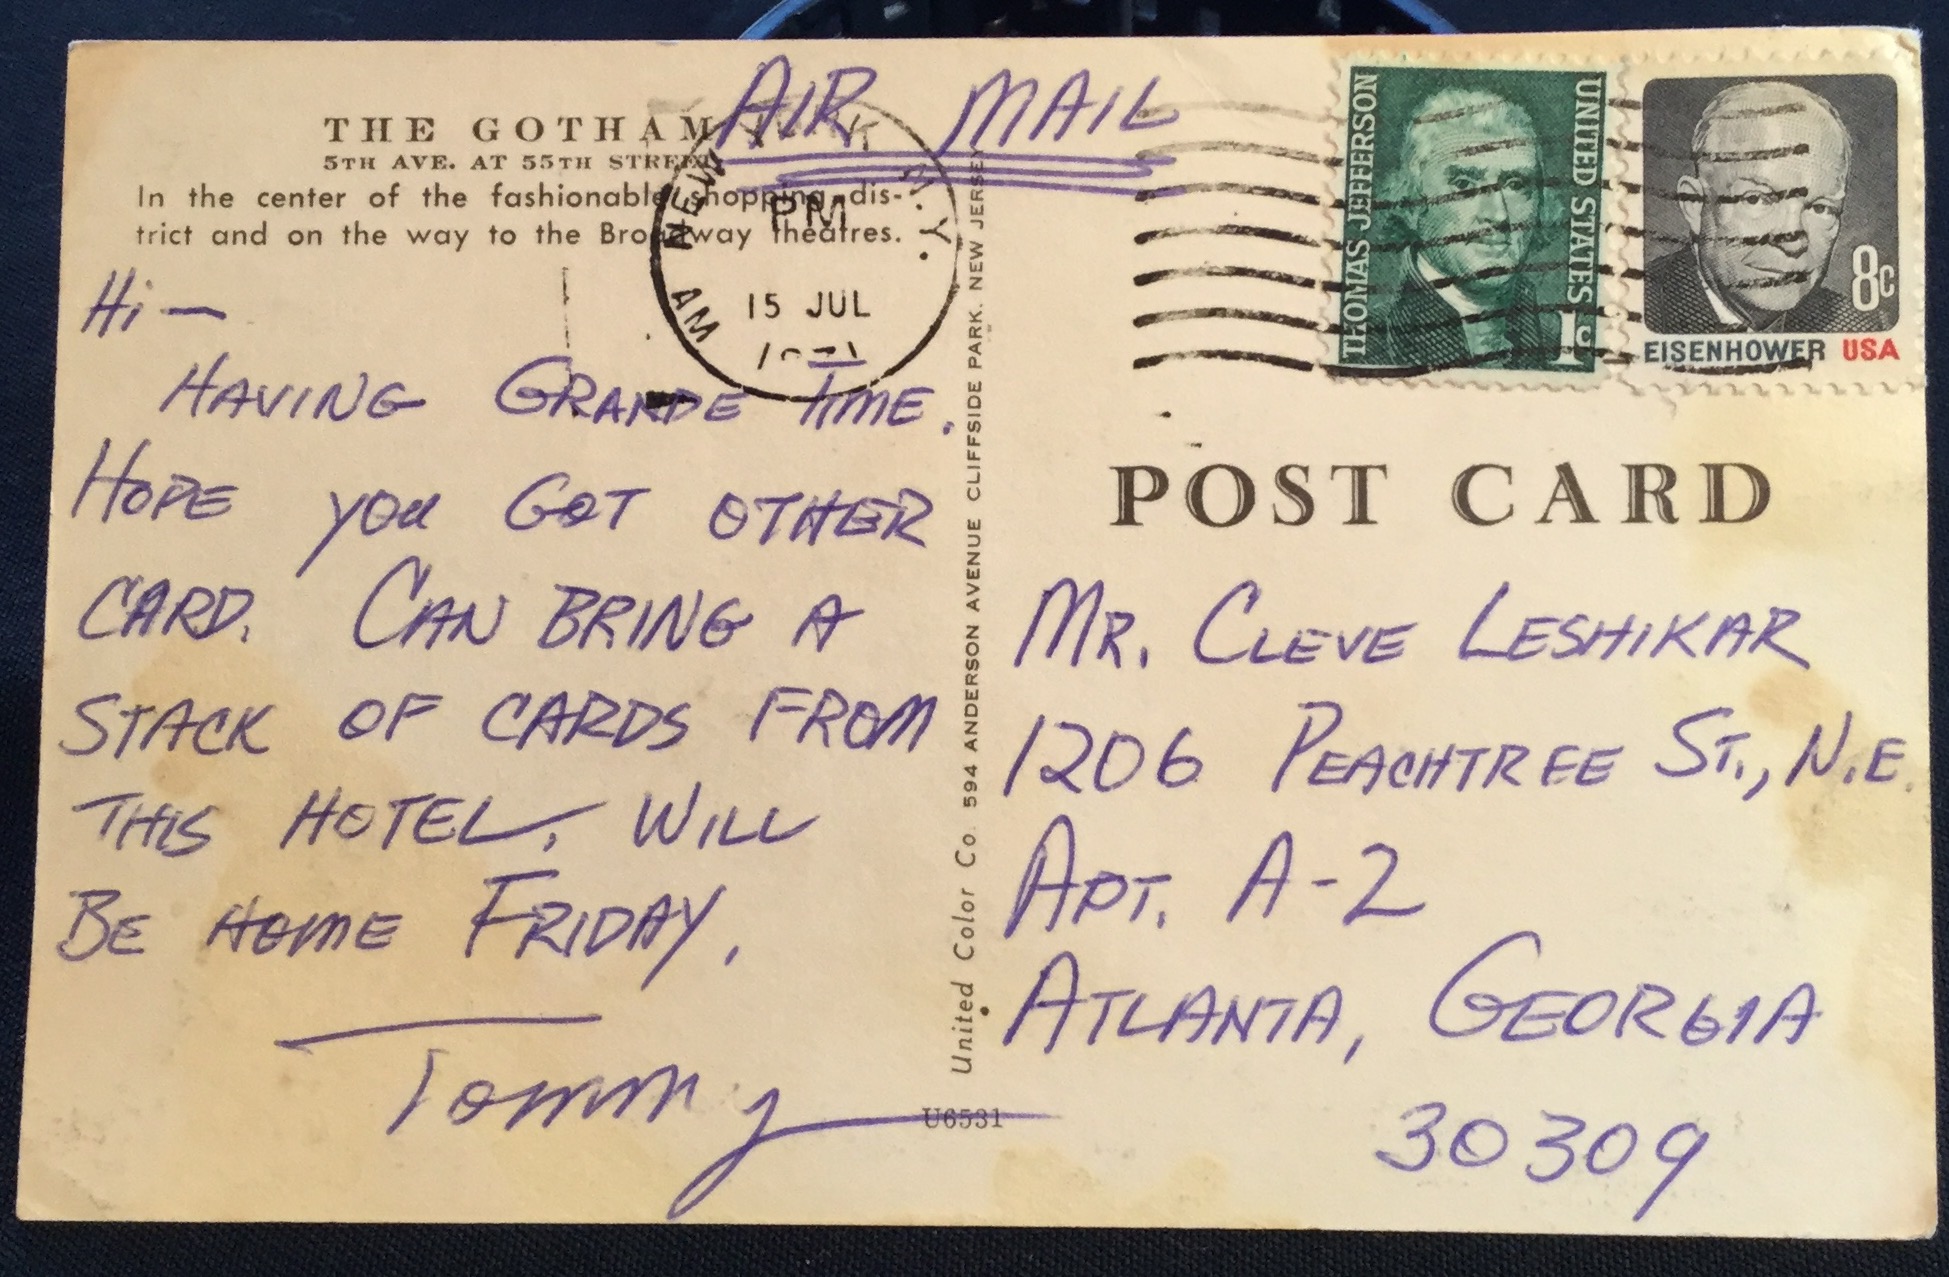 AIR MAIL
THE GOTHAM
5TH AVE. AT 55TH STREET
In the center of the fashionable shopping dis-
trict and on the way to the Broadway theatres.
NEW
N.Y.
PM
AM
15 JUL
Hi —
HAVING GRANDE TIME.
HOPE YOU GOT OTHER
CARD. CAN BRING A
STACK OF CARDS FROM
THIS HOTEL. WILL
BE HOME FRIDAY.
Tommy
United Color Co. 594 ANDERSON AVENUE CLIFFSIDE PARK. NEW JERSEY
U6531
THOMAS JEFFERSON
UNITED STATES
1c
8c
EISENHOWER USA
POST CARD
MR. CLEVE LESHIKAR
1206 PEACHTREE ST., N.E.
APT. A-2
ATLANTA, GEORGIA
30309